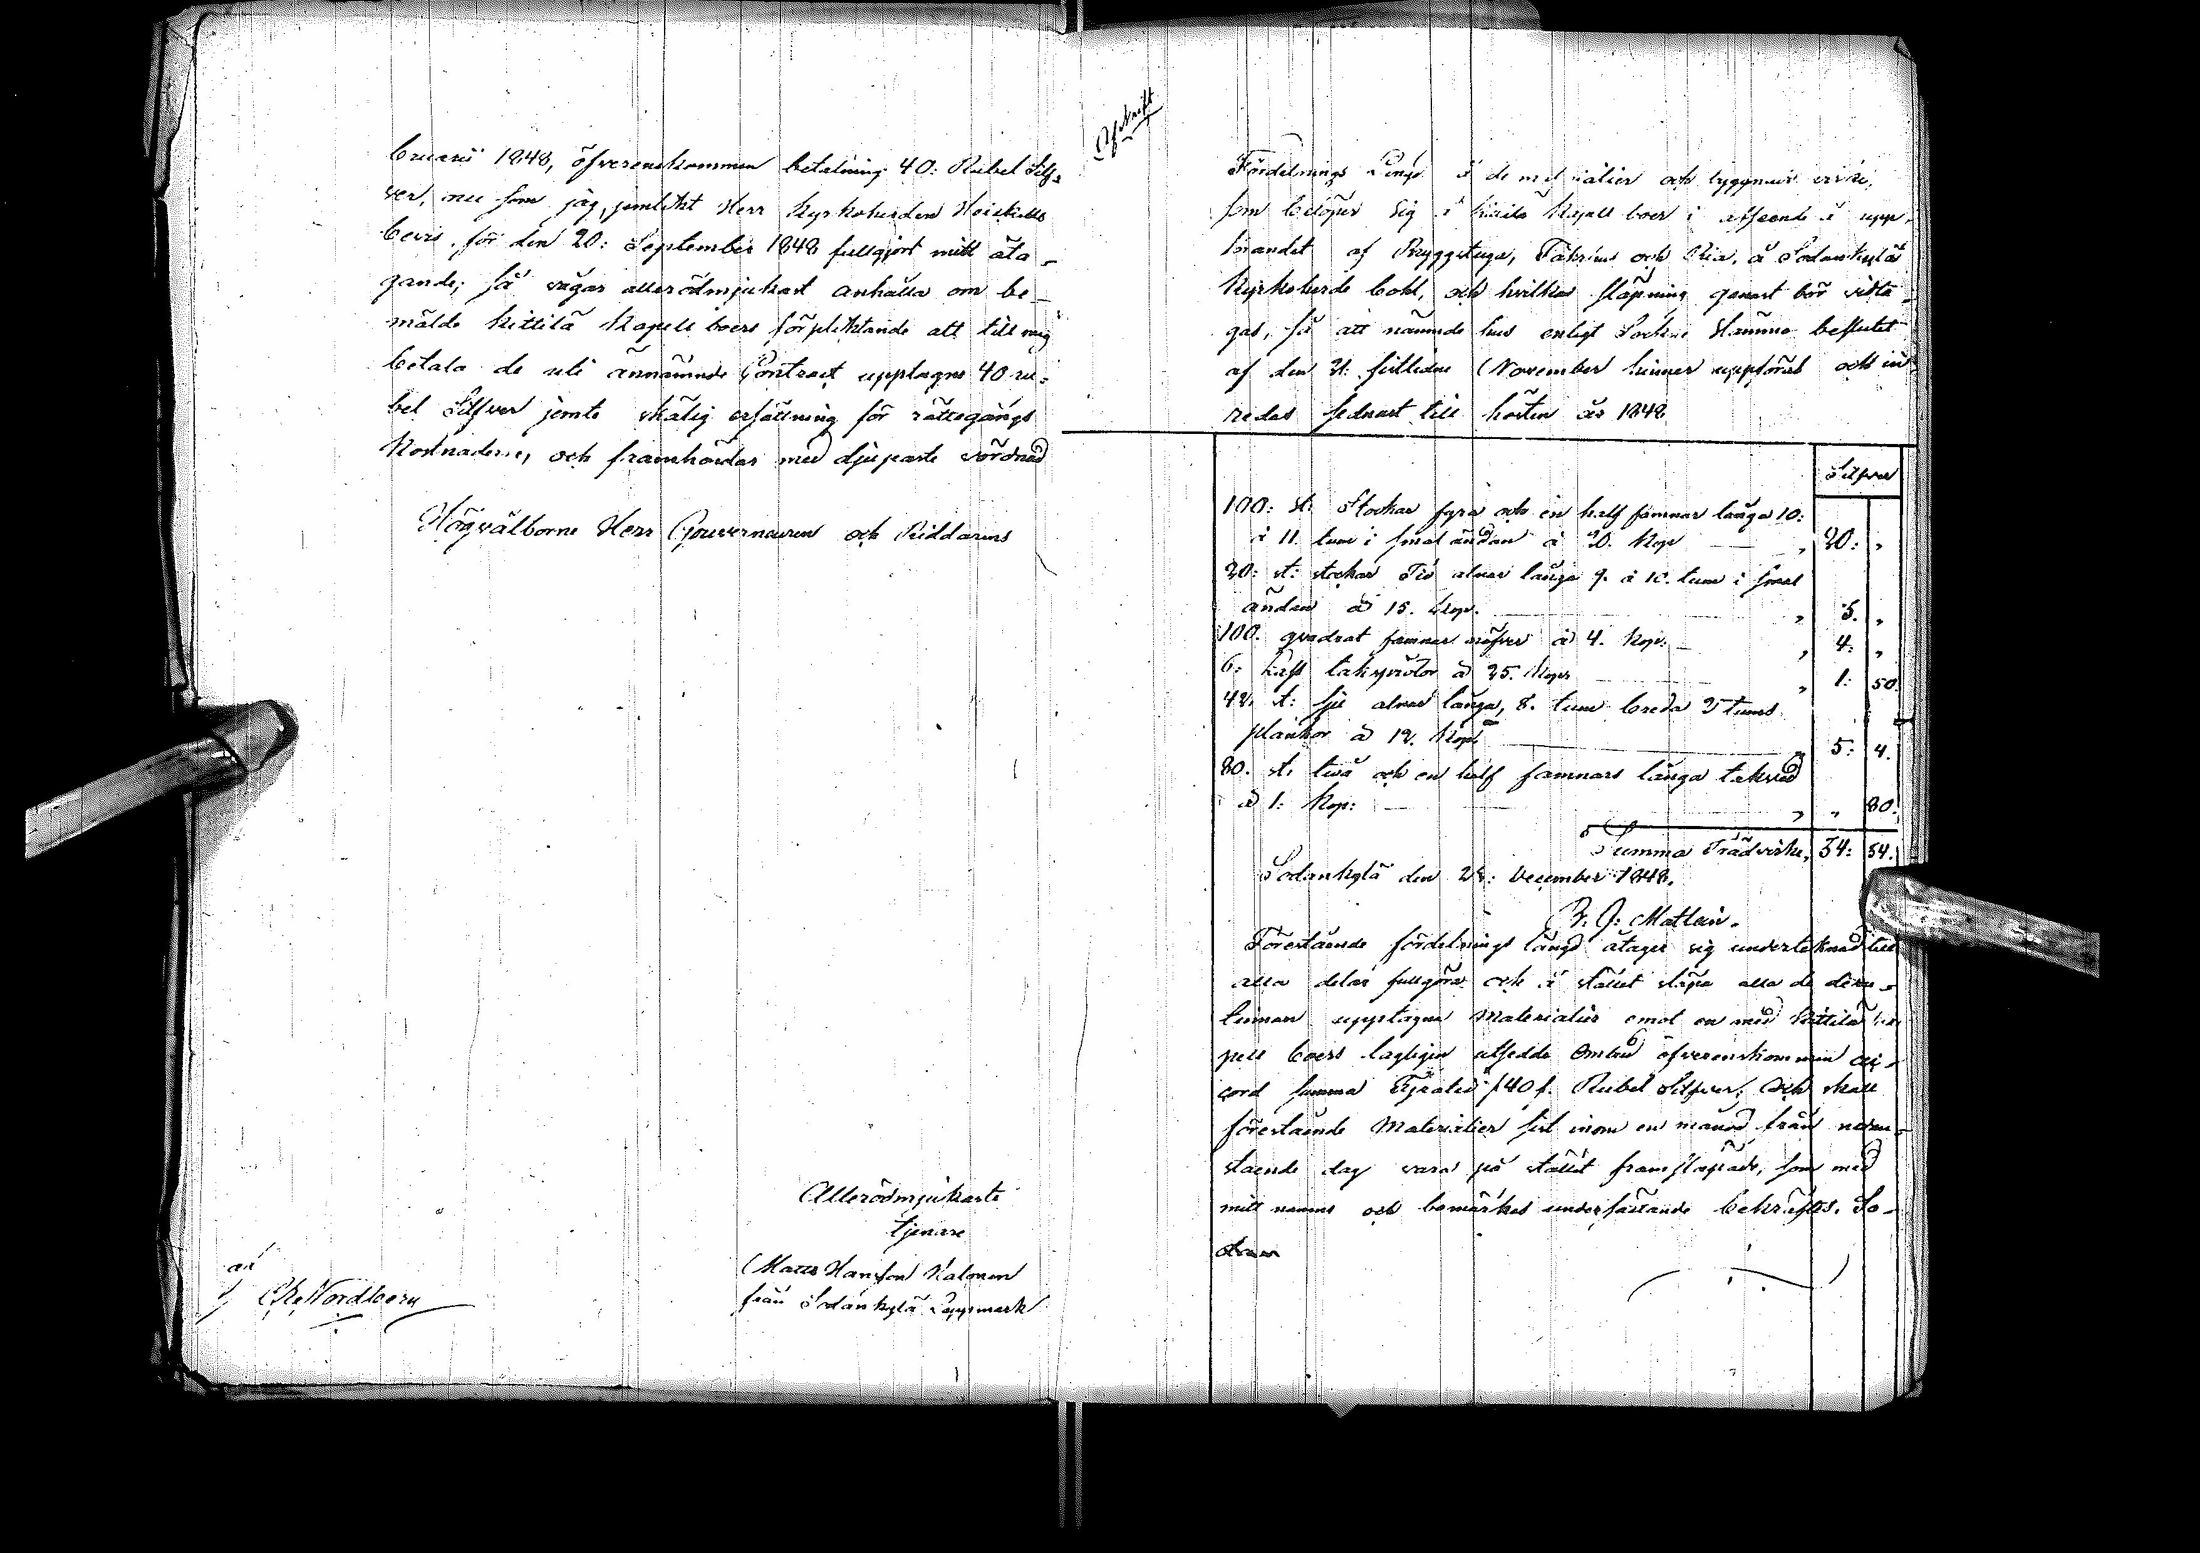 bruarii 1848, öfverenskommen betalning 40: Rubel Silf-
ver, nu som jag, jemlikt Herr Kyrkoherden Heickells
bevis, för den 20: September 1848 fullgjort mitt åta-
gande; så vågar allerödmjukast anhålla om be-
mälde Kittilä Kapell boers förpliktande att till mig
betala de uti ännämnde Contract upptagne 40 ru-
bel Silfver jemte skälig ersättning för rättegångs
Kostnaderne, och framhärdar med djupaste vördnad
Högvälborne Herr Gouverneuren och Riddarens
Allerödmjukaste
tjenare
Matts Hansson Halonen
från Sodankylä Lappmark
Nordberg
Afskrift
Fördelnings Längd å de materialier och byggnads virke,
som belöper sig i Kittilä Kapell boer i afseende å upp-
brandet af Bryggstuga, Fähus och Ria, å Sodankylä
Kyrkoherde bohl, och hvilkas släpning genast bör vidta-
gas, så att nämnde hus enligt Sockne Stämmo beslutet
af den 21: sistledne November hinner uppföras och in-
redas sednast till hösten år 1848
Silfver
100: st: Stockar fyra och en half famnar långa 10:
à 11. tum i smal ändan à 20. Kop — „ 20: „
20: st: stockar Tio alnar långa 9. à 10. tum i smal
ändan à 15. Kop. — „ 3. „
100. qvadrat famnar näfver à 4. Kop: — „ 4: „
6: Kast takspröten à 25. Kop — „ 1: 50.
42. st: sju alnar långa, 8. tum breda 2 tums
plankor à 12. Kop: — „ 5: 4.
80. st. två och en half famnars långa takved
à 1: Kop: — „ „ 80.
Summa Trädvirke, 34: 34.
Sodankylä den 28: December 1848.
F. J. Matlein.
Förestående fördelnings längd åtager sig undertecknad till
alla delar fullgöra och å stället släpa alla de deru-
tinnan upptagna Materialier emot en med Kittilä ka-
pell boers lagligen utsedde Ombud öfverenskommen ac-
cord summa Fyratio /40/. Rubel Silfver; Och skall
förestående Materialier sist inom en månad från nedan-
stående dag vara på stället framsläpade, som med
mitt namns och bomärkes undersättande bekräftes. So-